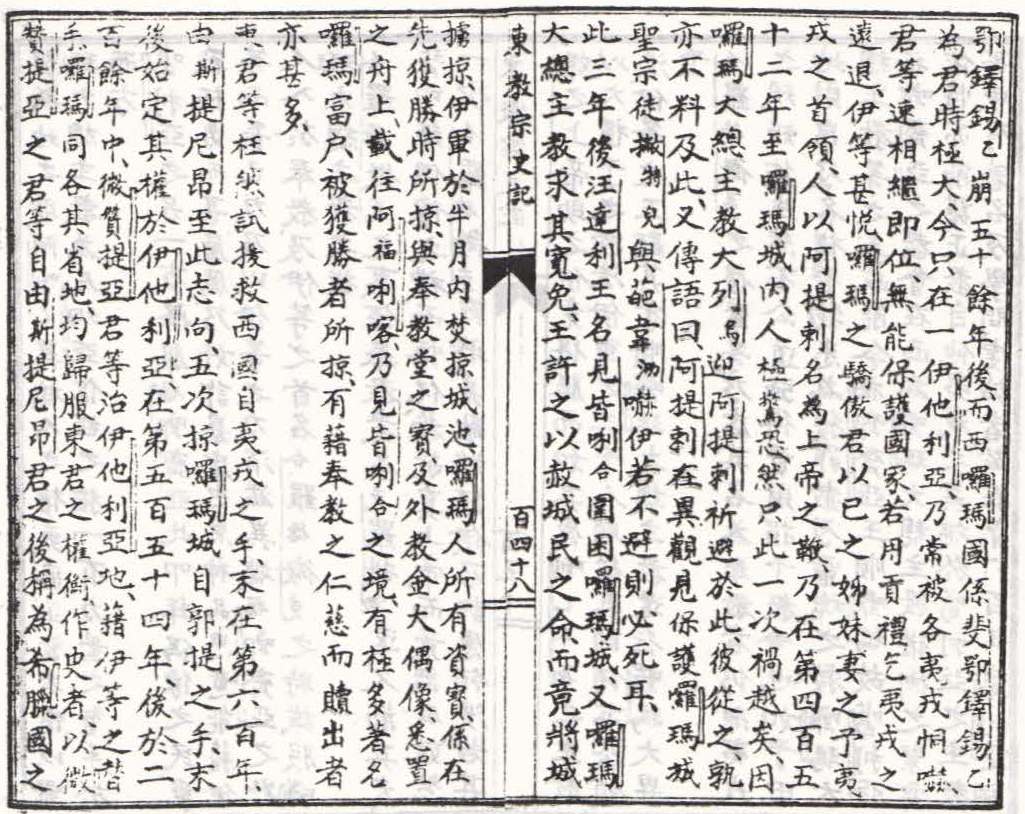 鄂鐸錫乙崩五十餘年後、而西囉瑪國係斐鄂鐸錫乙
為君時極大、今只在一伊他利亞、乃常被各夷戎恫嚇、
君等速相繼即位、無能保護國家、若用貢禮乞夷戎之
遠退、伊等甚悦、囉瑪之驕傲君以己之姊妹妻之予夷
戎之首領、人以阿提剌名為上帝之鞭、乃在第四百五
十二年至囉瑪城内、人極驚恐、然只此一次禍越矣、因
囉瑪大總主教大列烏迎阿提剌祈避於此、彼從之、孰
亦不料及此、又傳語曰、阿提剌在異觀見保護囉瑪城
聖宗徒撒特兒與葩韋泐嚇伊若不避則必死耳、
此三年後汪達利王名見皆唎合圍困囉瑪城、又囉瑪
大總主教求其寬免、王許之以赦城民之命、而竟將城
東教宗史記
百四十八
擄掠、伊軍於半月内焚掠城池、囉瑪人所有資寳、係在
先獲勝時所掠、與奉教堂之寳、及外教金大偶像、悉置
之舟上、載往阿福唎喀、乃見皆唎合之境、有極多著名
囉瑪富户、被獲勝者所掠、有藉奉教之仁慈而贖出者
亦甚多、
東君等枉然試援救西國自夷戎之手、末在第六百年、
由斯提尼昂至此志向、五次掠囉瑪城自郭提之手、末
後始定其權於伊他利亞、在第五百五十四年、後於二
百餘年中、微贊提亞君等治伊他利亞地、藉伊等之替
手、囉瑪同各其省地、均歸服東君之權衡、作史者、以微
贊提亞之君等自由斯提尼昂君之後稱為希臘國之